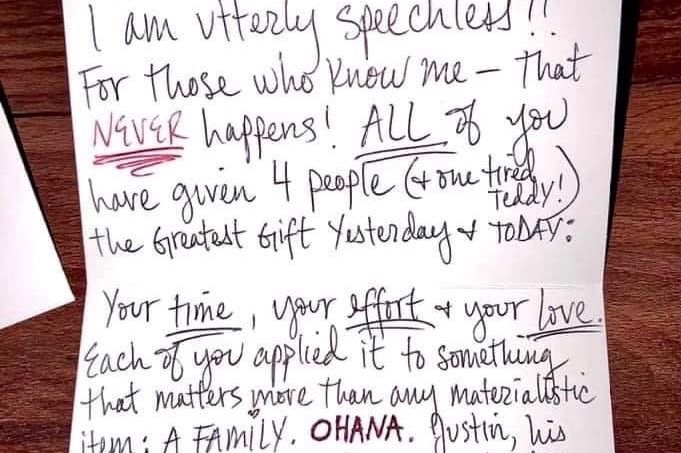 I am utterly speechless!!
For those who know me – that
NEVER happens! ALL of you
have given 4 people (+ one tired Teddy!)
the Greatest Gift Yesterday & TODAY:
Your time, your effort & your love.
Each of you applied it to something
that matters more than any materialistic
item: A FAMILY. OHANA. Justin, his